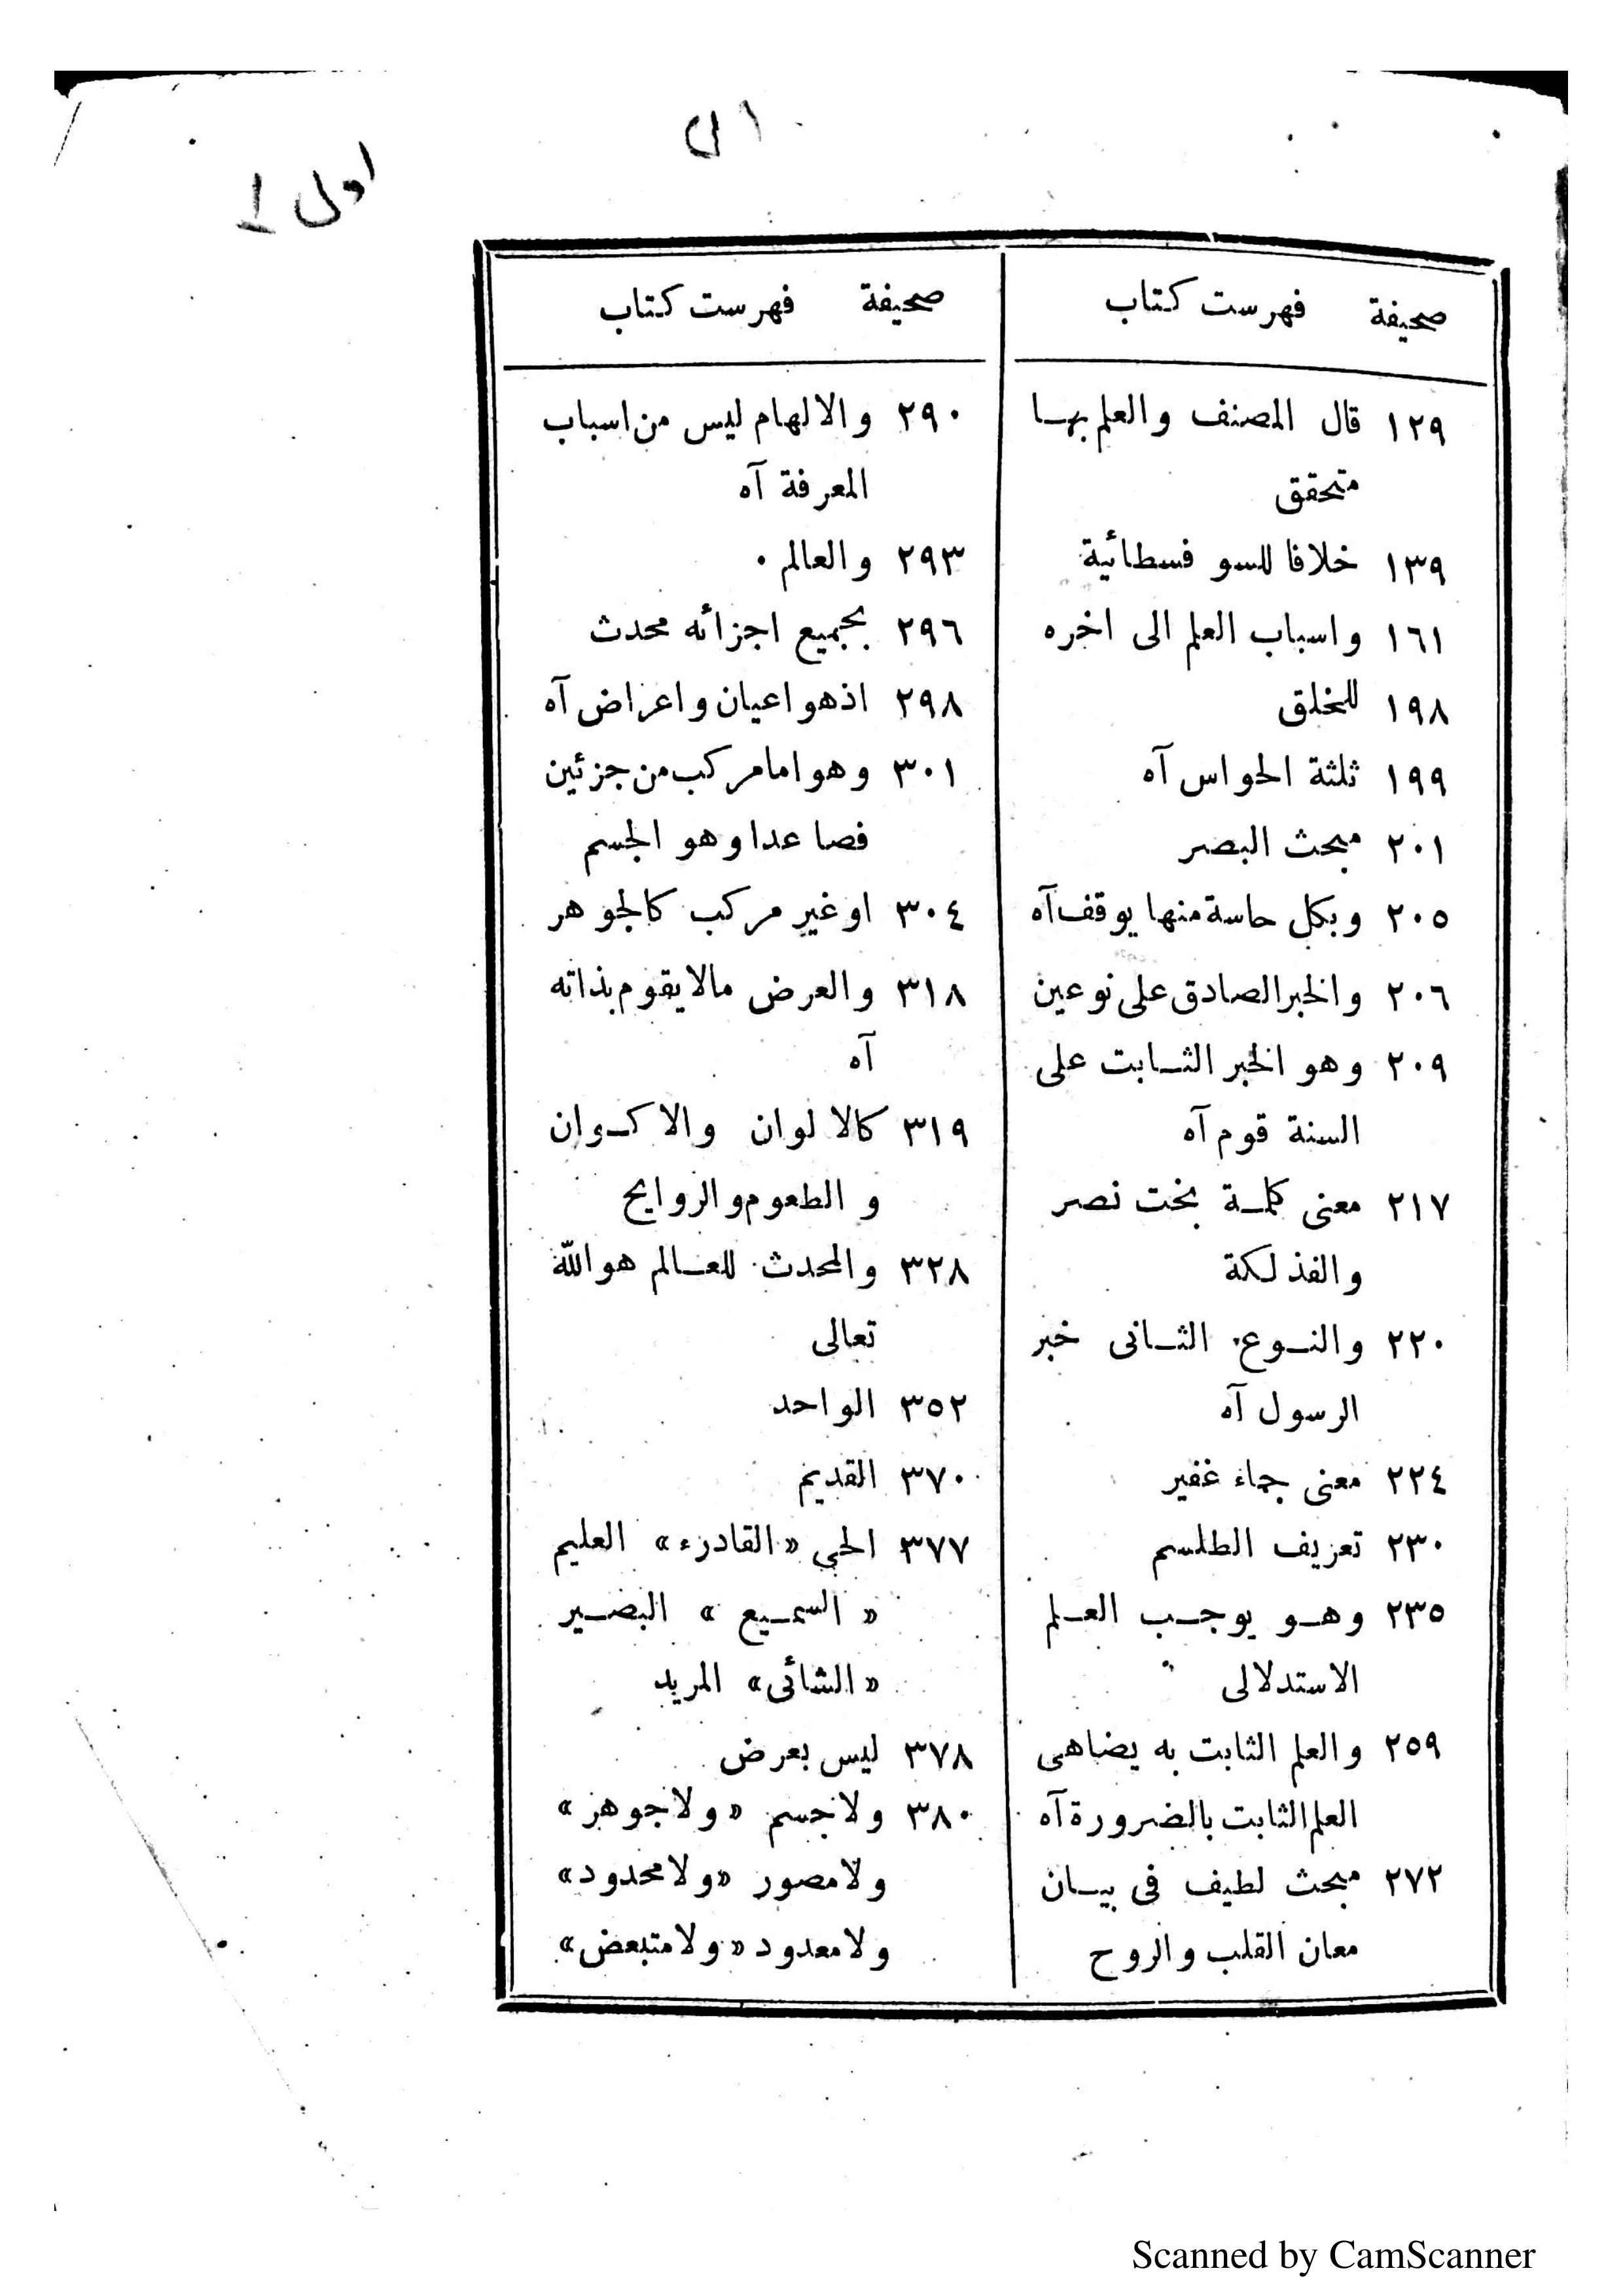 اول 1
صحيفة فهرست كتاب
١٢٩ قال المصنف والعلم بهـا
متحقق
١٣٩ خلافا للسو فسطائية
١٦١ واسباب العلم الى اخره
١٩٨ للخلق
١٩٩ ثلثة الحواس آه
٢٠١ مبحث البصر
٢٠٥ وبكل حاسة منها يوقف آه
٢٠٦ والخبر الصادق على نوعين
٢٠٩ وهو الخبر الثـابت على
السنة قوم آه
٢١٧ معنى كلمـة بخت نصر
والفذ لكة
٢٢٠ والنـوع الثـانى خبر
الرسول آه
٢٢٤ معنى جماء غفير
٢٣٠ تعريف الطلسم
٢٣٥ وهـو يوجـب العـلم
الاستدلالى
٢٥٩ والعلم الثابت به يضاهى
العلم الثابت بالضرورة آه
٢٧٢ مبحث لطيف فى بيـان
معان القلب والروح
صحيفة فهرست كتاب
٢٩٠ والالهام ليس من اسباب
المعرفة آه
٢٩٣ والعالم ٠
٢٩٦ بجميع اجزائه محدث
٢٩٨ اذهو اعيان واعراض آه
٣٠١ وهو اما مركب من جزئين
فصا عدا وهو الجسم
٣٠٤ او غير مركب كالجو هر
٣١٨ والعرض مالا يقوم بذاته
آه
٣١٩ كالا لوان والاكـوان
و الطعوم والروايح
٣٢٨ والمحدث للعـالم هو الله
تعالى
٣٥٢ الواحد
٣٧٠ القديم
٣٧٧ الحى «القادرء» العليم
«السمـيع» البصـير
«الشائى» المريد
٣٧٨ ليس بعرض
٣٨٠ ولا جسم «ولا جوهر»
ولا مصور «ولا محدود»
ولا معدود «ولا متبعض»
Scanned by CamScanner